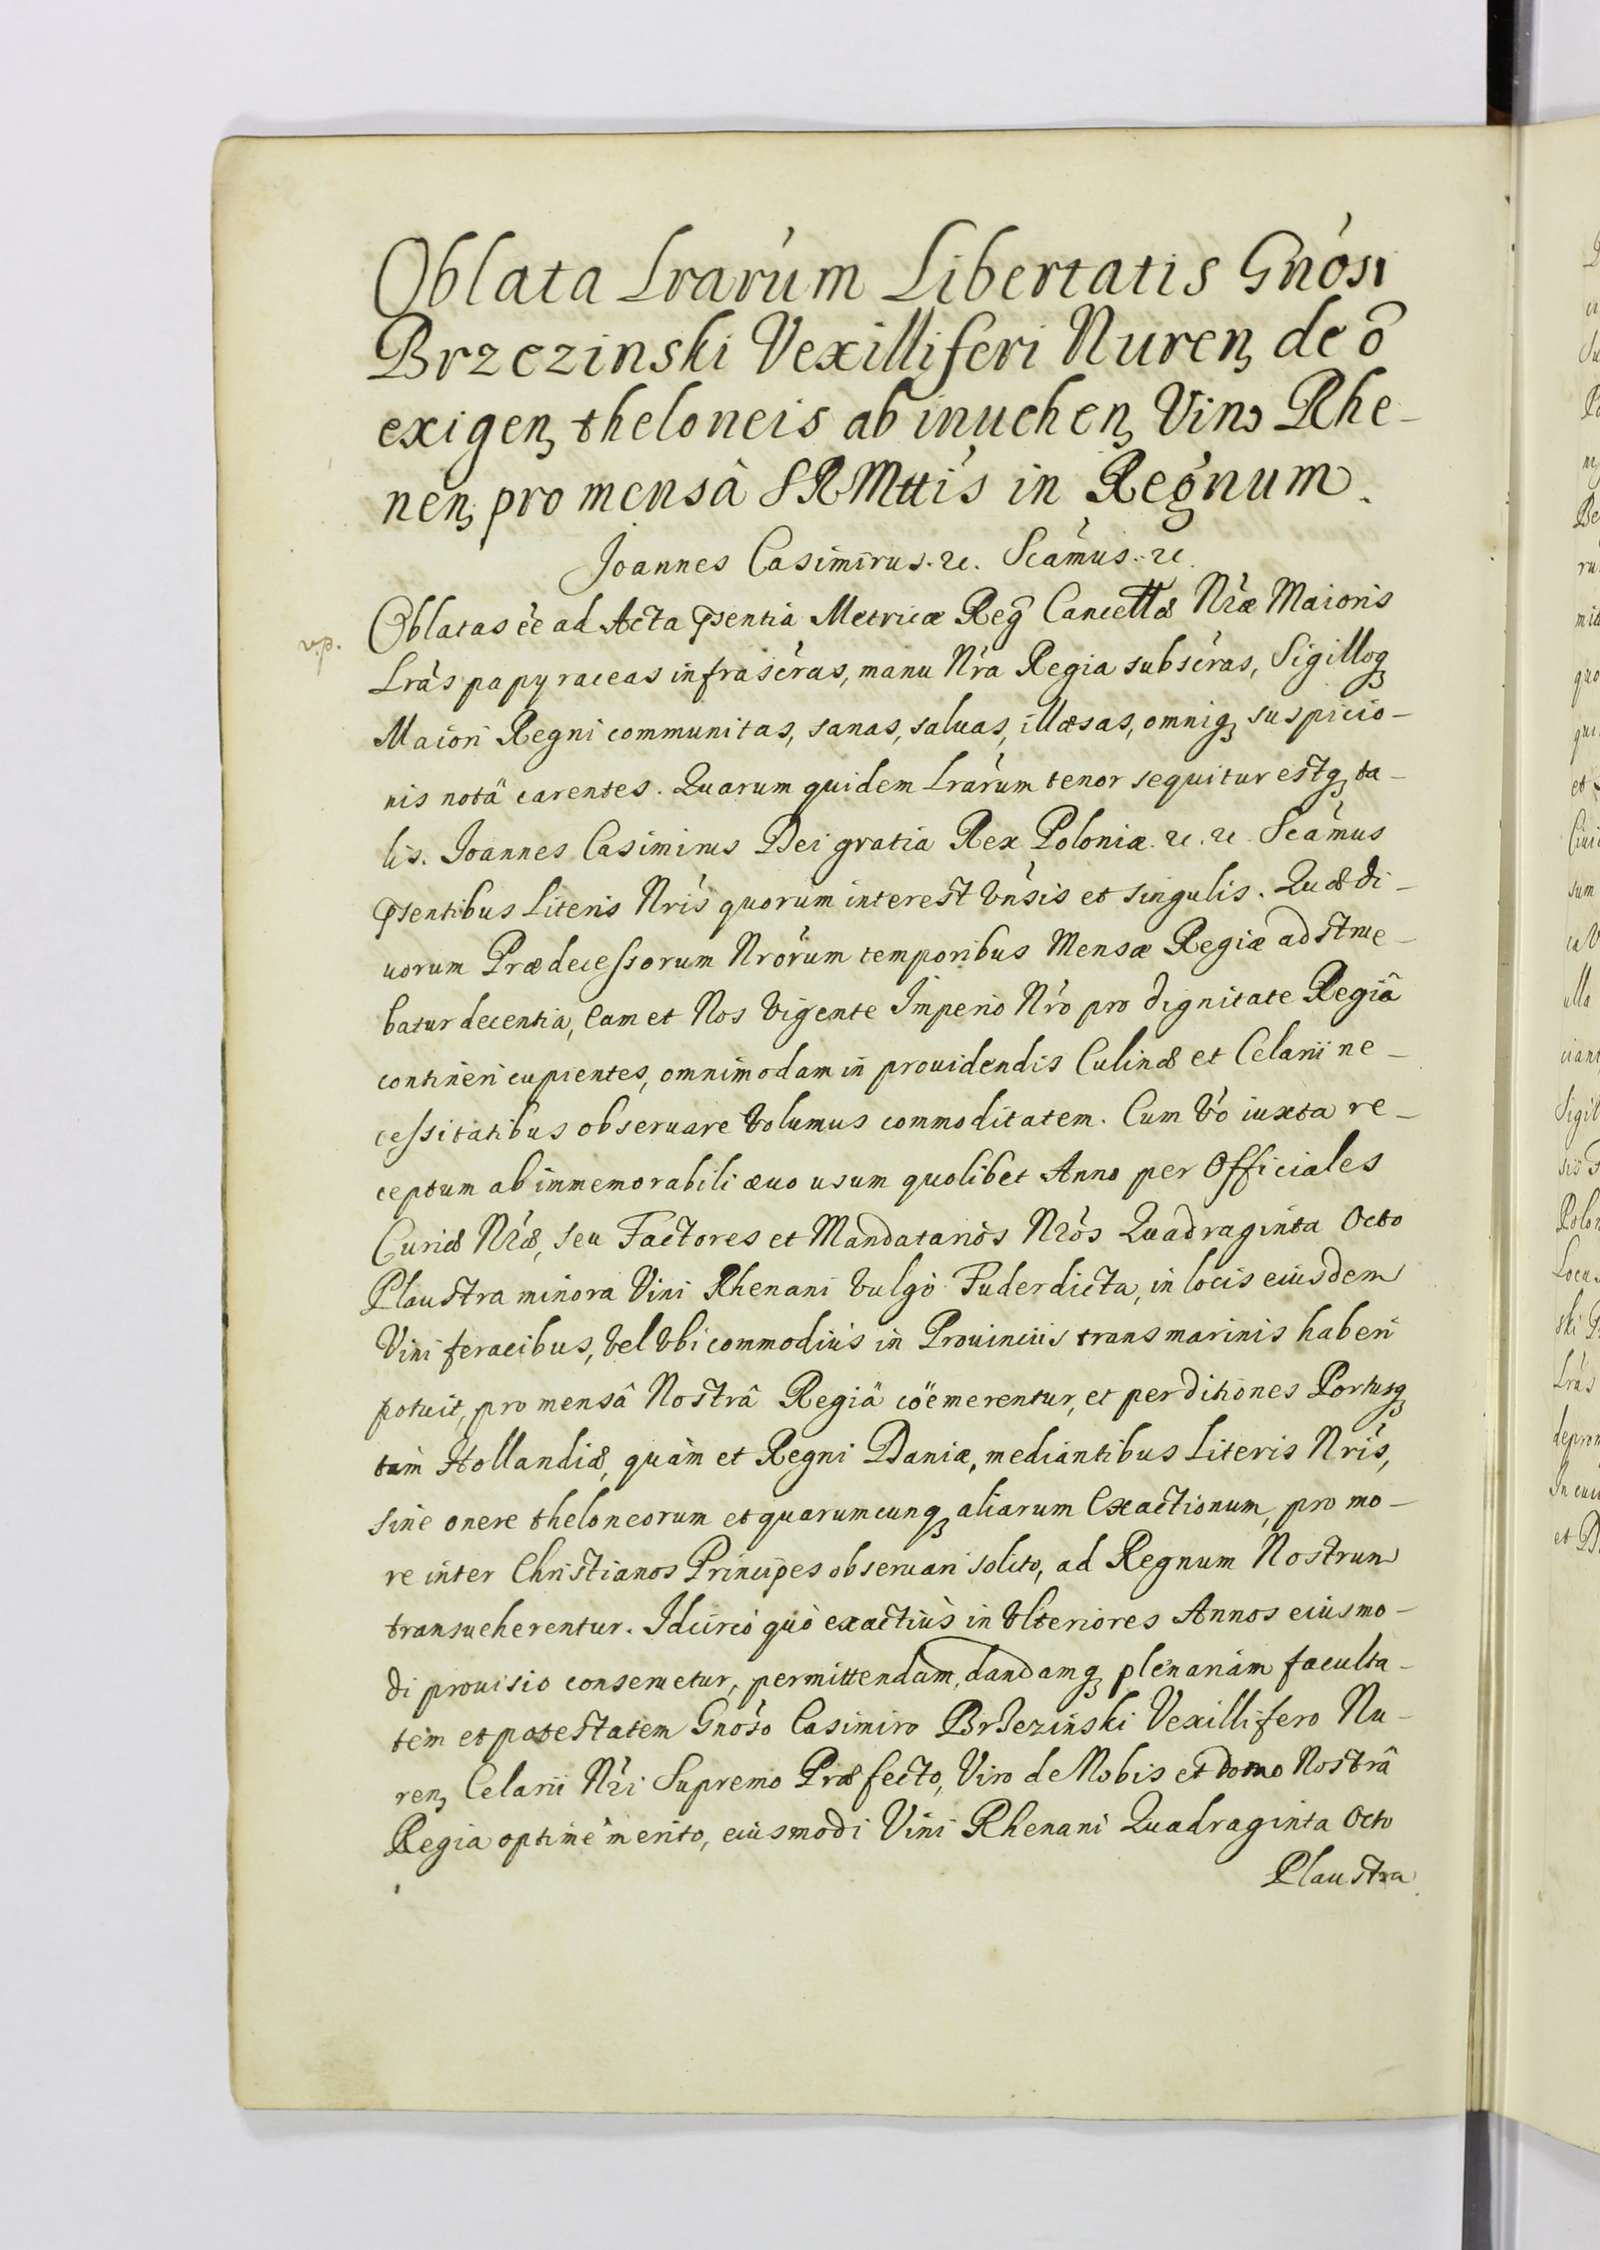 Oblata Lrarúm Libertatis Gnósi
Brzezinski Vexilliferi Nureņ de õ
exigeņ theloneis ab inueheņ Vino Rhe-
neņ pro mensâ SRMttis in Regnum.
Joannes Casimirus. &c. Scámus. &c.
v.p.
Oblatas ee ad Acta p̃sentia Metricæ Reg̃ Cancellæ Nræ Maioris
Lrás papyraceas infrascras, manu Nra Regia subscras, Sigilloq;
Maiori Regni communitas, sanas, saluas, illæsas, omniq; suspicio-
nis notâ carentes. Quarum quidem Lrarúm tenor sequitur estq; ta-
lis. Joannes Casimirus Dei gratia Rex Poloniæ. &c. &c. Scámus
p̃sentibus Literis Nris quorum interest vnsis et singulis. Quæ di-
uorum Prædecessorum Nrorum temporibus Mensæ Regiæ adstrue-
batur decentia, Eam et Nos vigente Imperio Nro pro dignitate Regiâ
contineri cupientes, omnimodam in prouidendis Culinæ et Celarii ne-
cessitatibus obseruare volumus commoditatem. Cum vo iuxta re-
ceptum ab immemorabili æuo usum quolibet Anno per Officiales
Curiæ Nræ, seu Factores et Mandatarios Nros Quadraginta Octo
Plaustra minora Vini Rhenani vulgò Fuder dicta, in locis eiusdem
Vini feracibus, vel vbi commodiùs in Prouinciis transmarinis haberi
potuit, pro mensâ Nostrâ Regiâ coëmerentur, et per ditiones Portusq;
tam Hollandiæ, quàm et Regni Daniæ, mediantibus Literis Nris,
sine onere theloneorum et quarumcunq; aliarum Exactionum, pro mo-
re inter Christianos Principes obseruari solito, ad Regnum Nostrum
transueherentur. Idcircò quò exactiùs in vlteriores Annos eiusmo-
di prouisio conseruetur, permittendam, dandamq; plenariam faculta-
tem et potestatem Gnoso Casimiro Brzezinski Vexillifero Nu-
reņ Celarii Nri Supremo Præfecto, Viro de Nobis et domo Nostrâ
Regia optimè merito, eiusmodi Vini Rhenani Quadraginta Octo
Plaustra